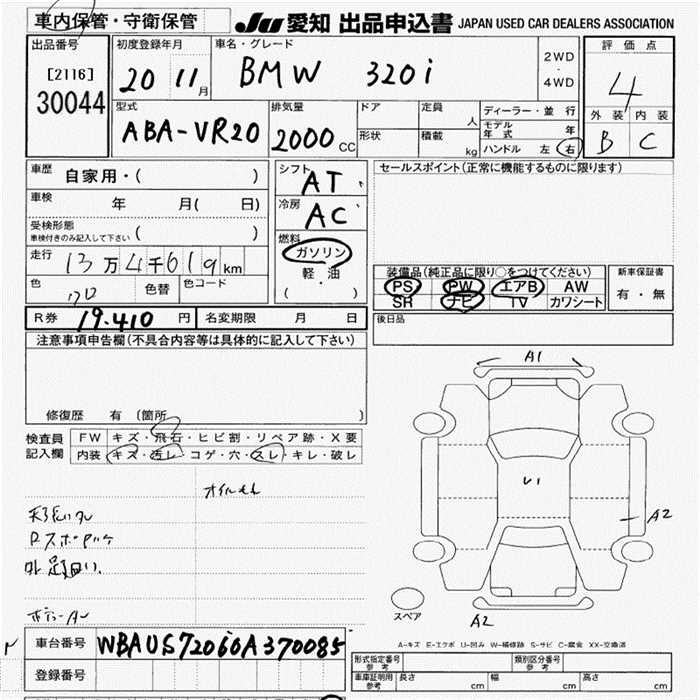 車内保管・守衛保管
JU 愛知 出品申込書 JAPAN USED CAR DEALERS ASSOCIATION
出品番号 初度登録年月 車名・グレード 2WD・4WD 評価点
[2116]
30044
20 11月 BMW 320i 4
型式 排気量 ドア 定員 人 ディーラー・並行 外装 内装
ABA-VR20 2000cc 形状 積載 kg モデル年式 年 B C
ハンドル 左 右
車歴 自家用・( ) シフト AT セールスポイント(正常に機能するものに限ります)
車検 年 月( 日) 冷房 AC
受検形態 ( )
車検付きのみ記入して下さい
燃料 ガソリン
軽・油
( )
走行 13万4千619km
装備品(純正品に限り○をつけてください) 新車保証書
PS PW エアB AW 有・無
SR ナビ TV カワシート
色 クロ 色替 色コード
R券 19.410円 名変期限 月 日 後日品
注意事項申告欄(不具合内容等は具体的に記入して下さい)
修復歴 有 (箇所 )
検査員記入欄 FW キズ・飛石・ヒビ割・リペア跡・X要
内装 キズ・汚レ・コゲ・穴・スレ・キレ・破レ
A1
U1
A2
スペア A2
A-キズ E-エクボ U-凹み W-補修跡 S-サビ C-腐食 XX-交換済
車台番号 WBAUS72060A370085
登録番号
形式指定番号 参考 類別区分番号 参考
車庫証明用 参考 長さ cm 幅 cm 高さ cm